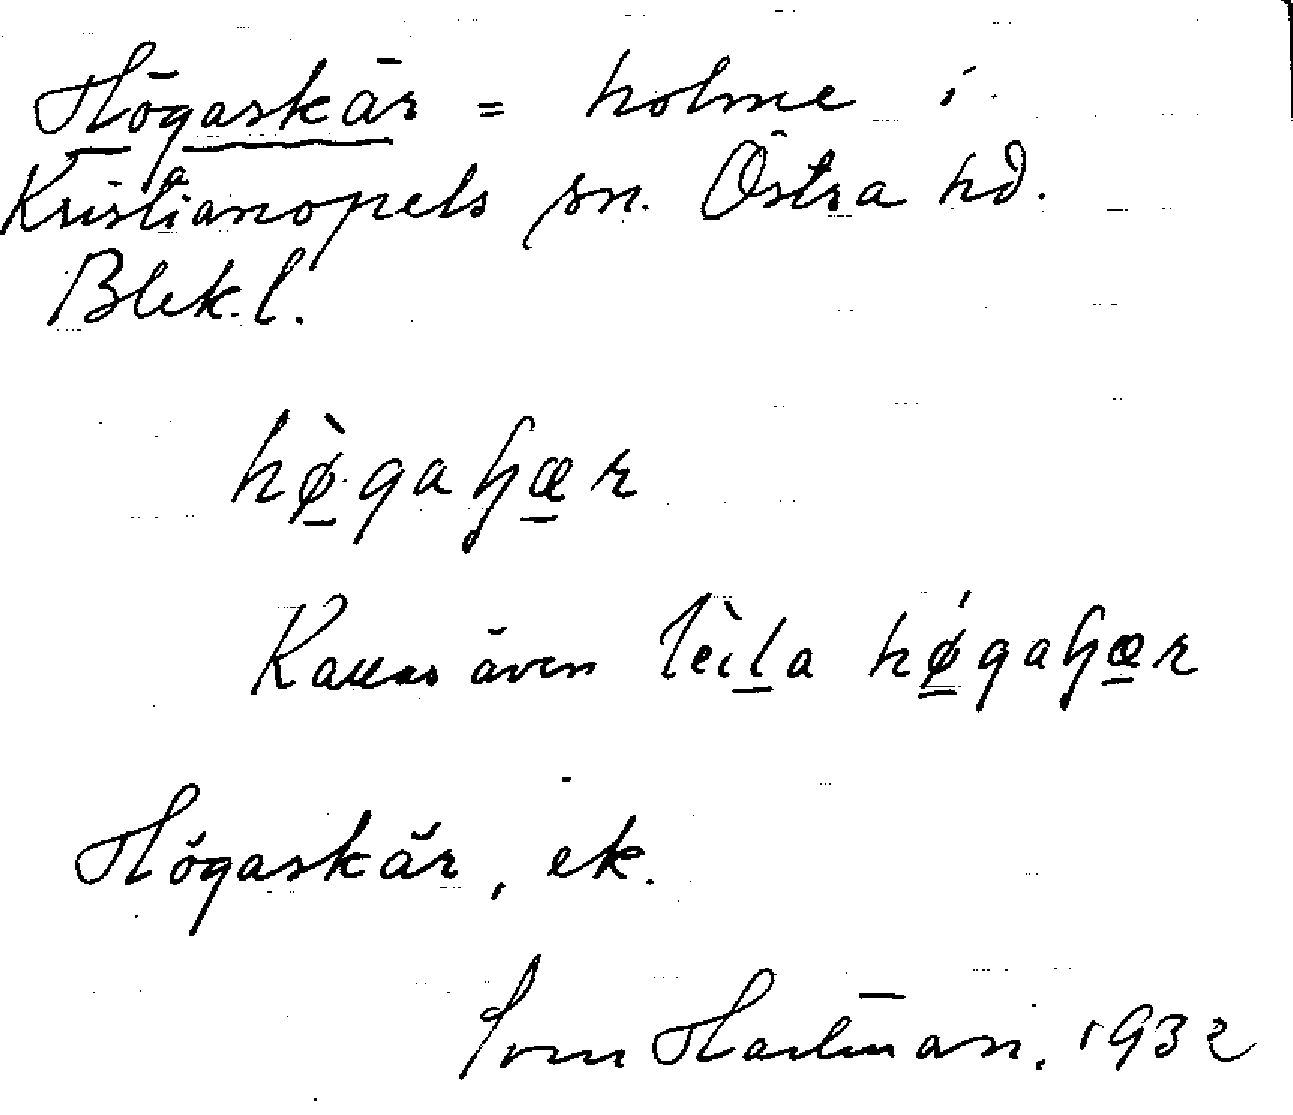 Högaskär = holme i
Kristianopels sn. Östra hd.
Blek. l.
hø̀gaɧær
Kallas även lìla hǿgaɧær
Högaskär, ek.
Sven Hartman. 1932